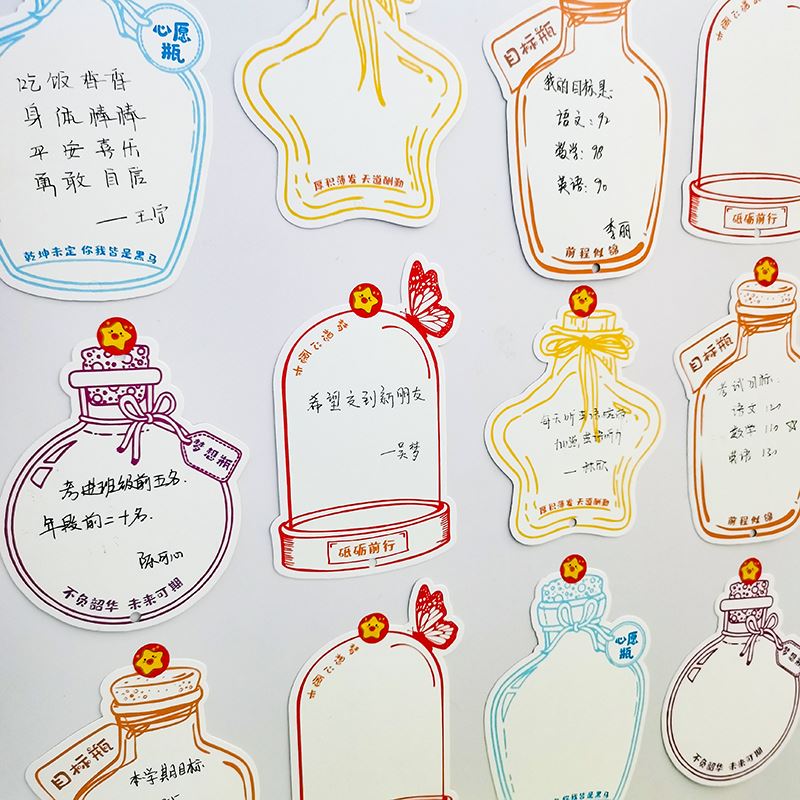 心愿
瓶
吃饭香香
身体棒棒
平安喜乐
勇敢自信
——王宁
乾坤未定 你我皆是黑马
厚积薄发 天道酬勤
目标瓶
我的目标是:
语文:92
数学:98
英语:90
李丽
前程似锦
砥砺前行
梦想瓶
考进班级前五名.
年段前二十名.
陈可心
不负韶华 未来可期
梦想心愿卡
希望交到新朋友
—吴梦
砥砺前行
每天听英语
加强英语听力
—林欣
厚积薄发 天道酬勤
目标瓶
考试目标:
语文 120
数学 110
英语 130
前程似锦
目标瓶
本学期目标
梦想心愿卡
心愿
瓶
你我皆是黑马
梦想瓶
不负韶华 未来可期